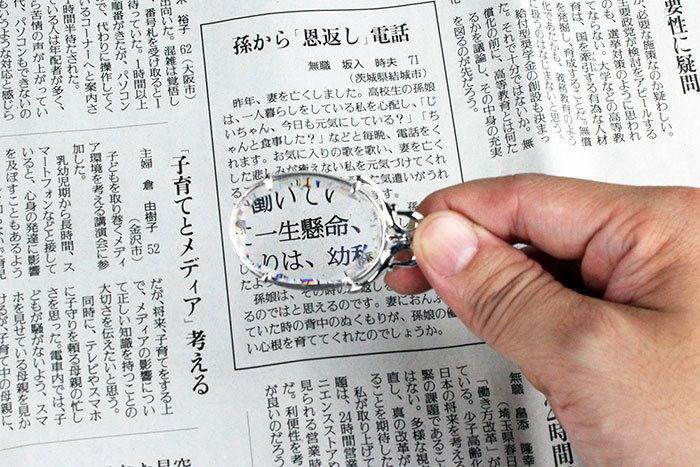 要性に疑問
が、必要な施策なのか疑わしい。
主要政党が検討をアピールする
も、選挙対策のように思われ
てならない。大学などの高等教
給付型奨学金の創設も決まっ
た。それで十分ではないか。無
償化の前に、高等教育とは何た
るかを議論し、その中身の充実
を図るのが先だろう。
孫から「恩返し」電話
無職 坂入 時夫 71
（茨城県結城市）
昨年、妻を亡くしました。高校生の孫娘
は、一人暮らしをしている私を心配し、「じ
いちゃん、今日も元気にしている？」「ち
ゃんと食事した？」などと毎晩、電話をく
れます。お気に入りの歌を歌い、妻を亡く
した悲しみが癒えない私を元気づけてくれ
た気遣いがうれ
働いてい
一生懸命、
りは、幼稚
孫娘は、その時の
るのではと思えるのです。妻におんぶ
ていた時の背中のぬくもりが、孫娘の優
い心根を育ててくれたのでしょうか。
裕子 62（大阪市）
出向いた。混雑は覚悟し
番号札を受け取ると
っていた。1時間以上
順番がきたが、パソコン
で、代わりに操作して
るコーナーへと案内さ
時間半待たされた。
いる人は年配者が多く、
な苦情の声が上がってい
パソコンもできないの
「子育てとメディア」考える
主婦 倉 由樹子 52
（金沢市）
子どもを取り巻くメディ
ア環境を考える講演会に参
加した。
乳幼児期から長時間、ス
マートフォンなどと接して
いると、心身の発達に影響
を及ぼすこともあるよう
だが、将来、子育てをする上
で、メディアの影響につい
て正しい知識を持つことの
大切さを伝えたいと思う。
同時に、テレビやスマホ
に子守りを頼る母親の忙し
さを思った。電車内では、子
どもが騒がないよう、スマ
ホを見せている母親を見か
けるが、子育て中の母親に、
無職 畠添 隆幸
（埼玉県春日
「働き方改革」が
ている。少子高齢化
日本の将来を考え
緊の課題であるこ
はない。多様な視
直し、真の改革が
ることを期待した
私が取り上げて
題は、24時間営業
ニエンスストアや
見られる営業時
だ。利便性を考
が良いのだろう
24時間